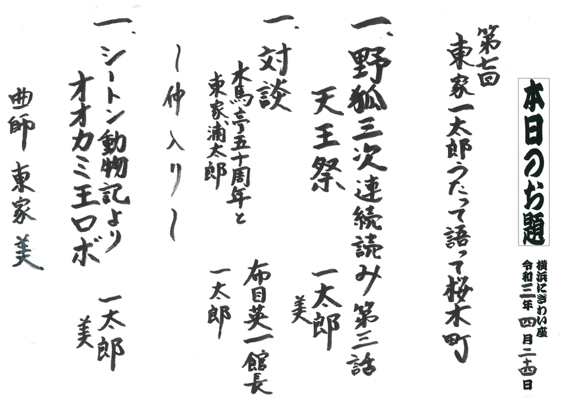 本日のお題
横浜にぎわい座
令和三年 四月二十四日
第七回
東家一太郎うたって語って桜木町
一、野狐三次連続読み 第三話
天王祭
一太郎
美
一、対談
木馬亭五十周年と
東家浦太郎
布目英一館長
一太郎
〜仲入り〜
一、シートン動物記より
オオカミ王ロボ
一太郎
美
曲師 東家 美